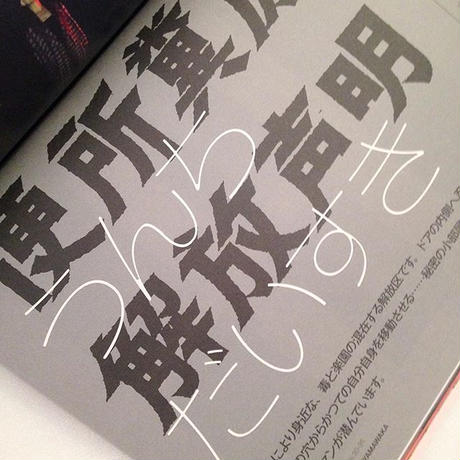 便所糞
解放声明
うんち
だいすき
により身近な、毒と楽園の混在する解放区です。ドアの内側へ
の穴からかつての自分自身を移動させる……秘密の小部
ンが潜んでいます。
YAMAWAKA